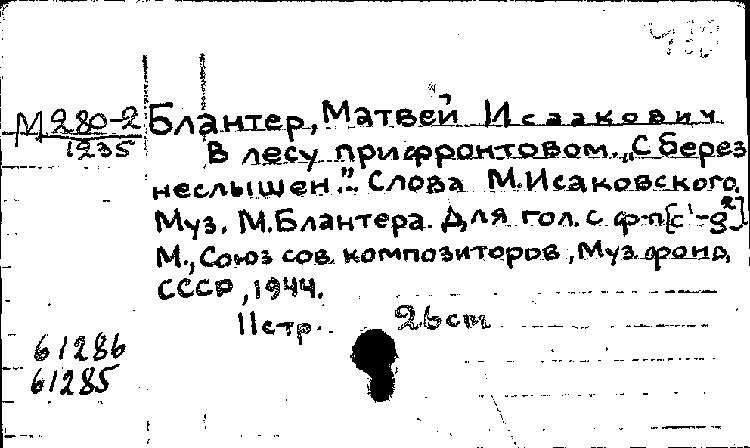 М 280-2
1235
Блантер, Матвей Исаакович
В лесу прифронтовом. „С берез
неслышен.." Слова М.Исаковского.
Муз. М.Блантера. Для гол. с ф-п [c¹-g²]
М., Союз сов. композиторов, Муз. фонд
СССР, 1944.
11стр. 26cm
61286
61285